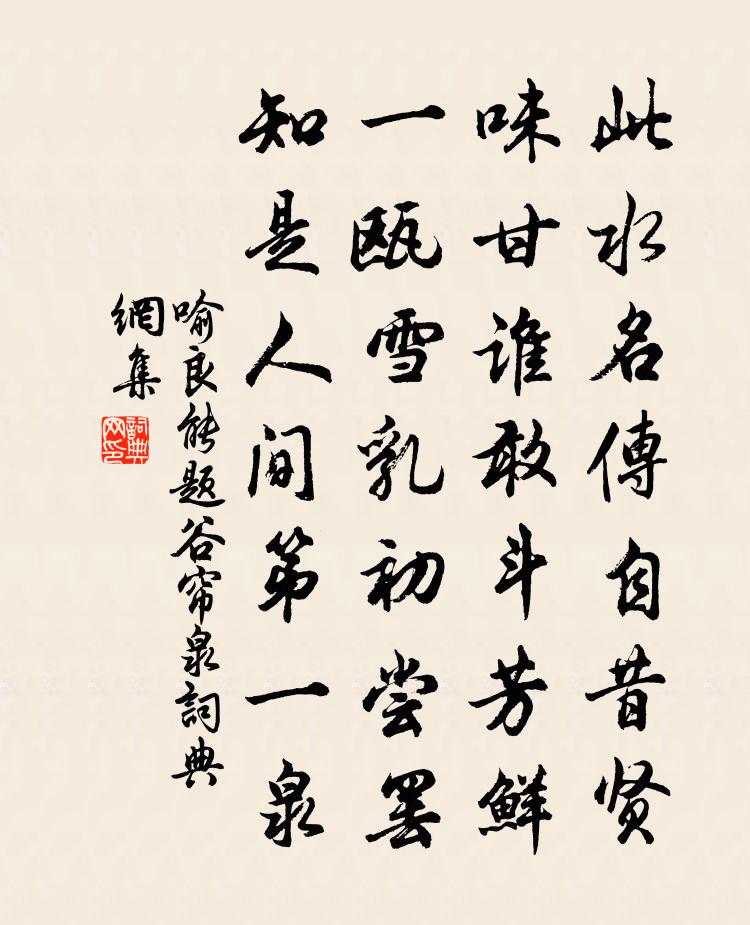 此水名傳自昔贤
味甘谁敢斗芳鮮
一瓯雪乳初尝罢
知是人间第一泉
喻良能题谷帘泉詞典
網集
詞典
网印